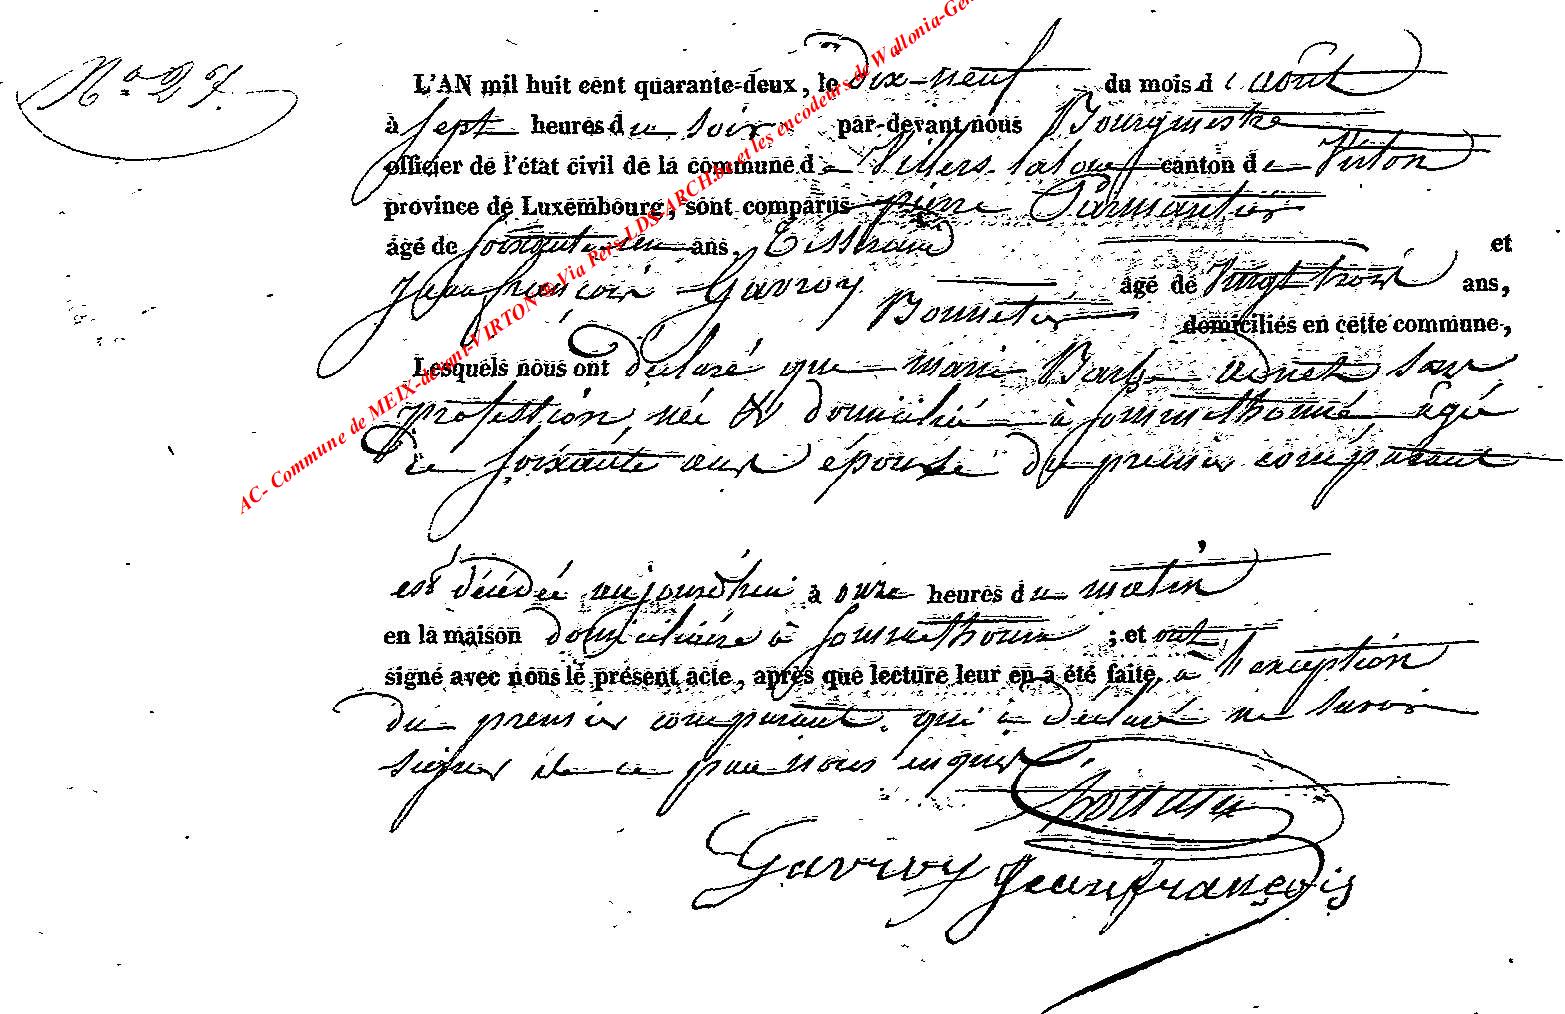 N° 27.
L'AN mil huit cent quarante-deux, le dix-neuf du mois d'août
à sept heures du soir par-devant nous Bourgmestre
officier de l'état civil de la commune de Villers-la-loue canton de Virton
province de Luxembourg, sont comparus pierre Parmentier
âgé de soixante un ans, Tisserand et
Jean françois Gavroy âgé de vingt trois ans,
Bonnetier domiciliés en cette commune,
Lesquels nous ont déclaré que marie Barbe adnet sans
profession née & domiciliée à Sommethonne âgée
de soixante ans épouse du premier comparant
est décédée aujourd'hui à onze heures du matin
en la maison domiciliaire à Sommethonne ; et ont
signé avec nous le présent acte, après que lecture leur en a été faite, à l'exception
du premier comparant qui a déclaré ne savoir
signer de ce par nous enquis
Gavroy Jean françois
AC- Commune de MEIX-devant-VIRTON & Via Pers LDS ARCH.be et les encodeurs de Wallonia-Gen